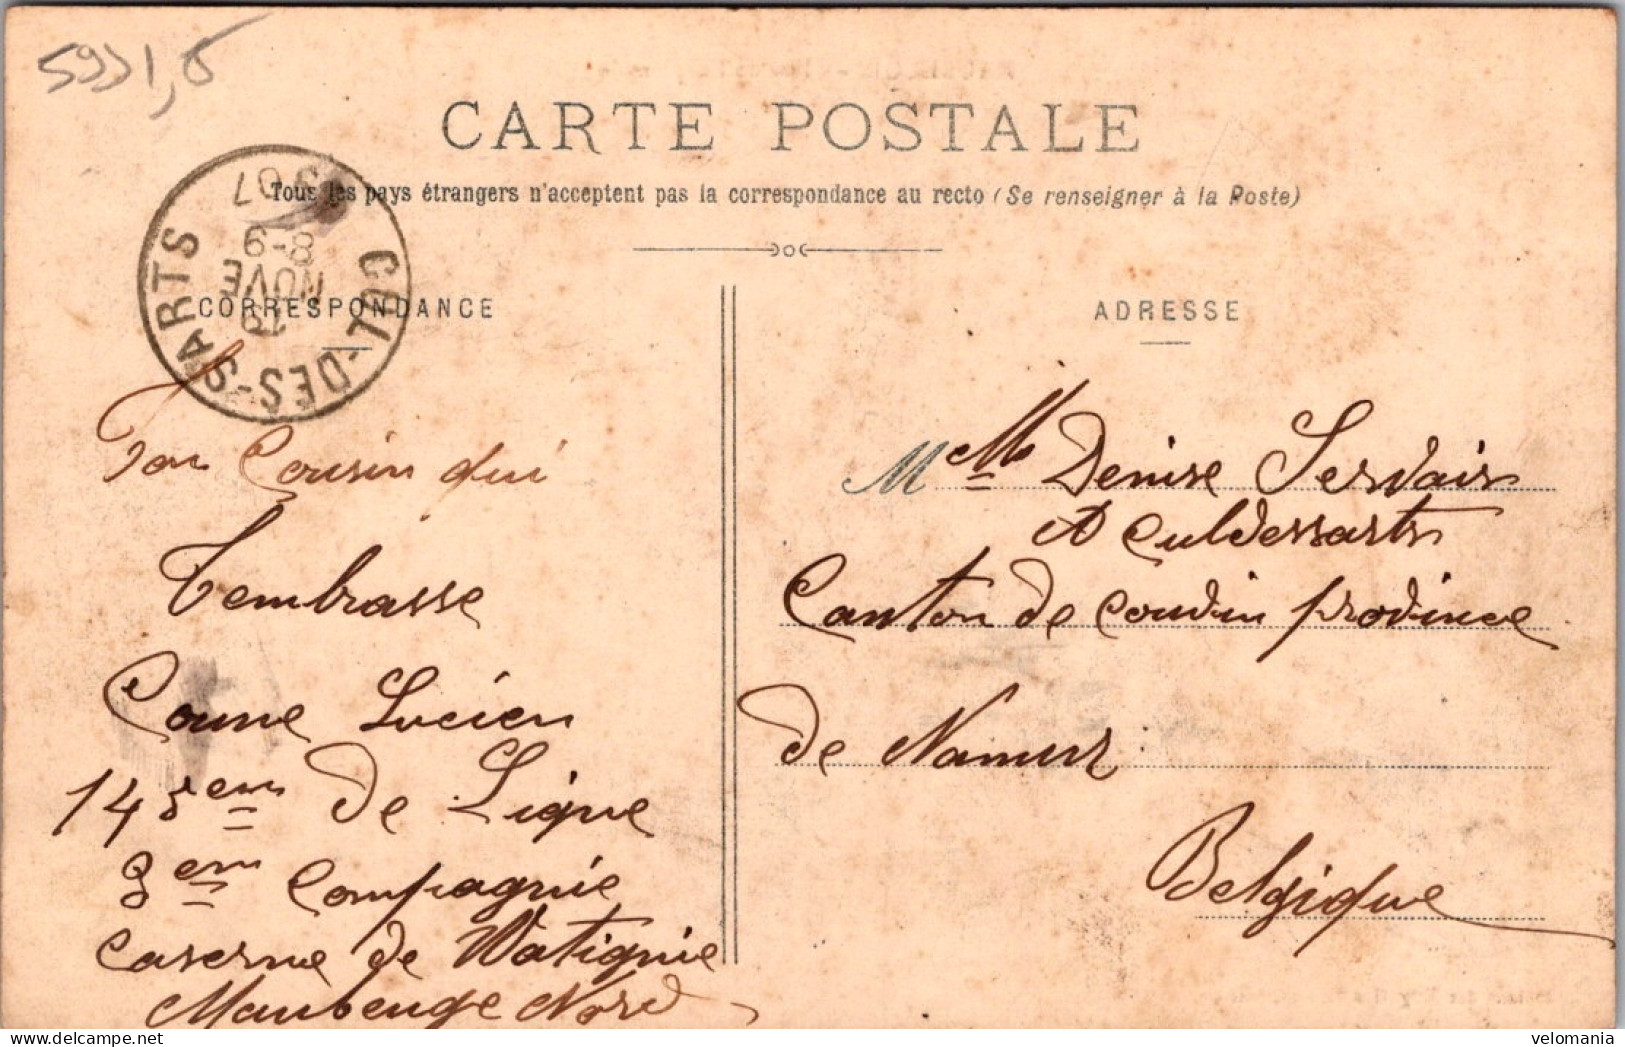 5931,5
CARTE POSTALE
Tous les pays étrangers n'acceptent pas la correspondance au recto (Se renseigner à la Poste)
CUL-DES-SARTS
19
NOVE
8-9
07
CORRESPONDANCE
Ton Cousin qui
t'embrasse
Coune Lucien
145em de Ligne
3em Compagnie
Caserne de Watignie
Maubeuge Nord
ADRESSE
M elle Denise Servais
A Culdessarts
Canton de Couvin province
de Namur
Belgique
velomania